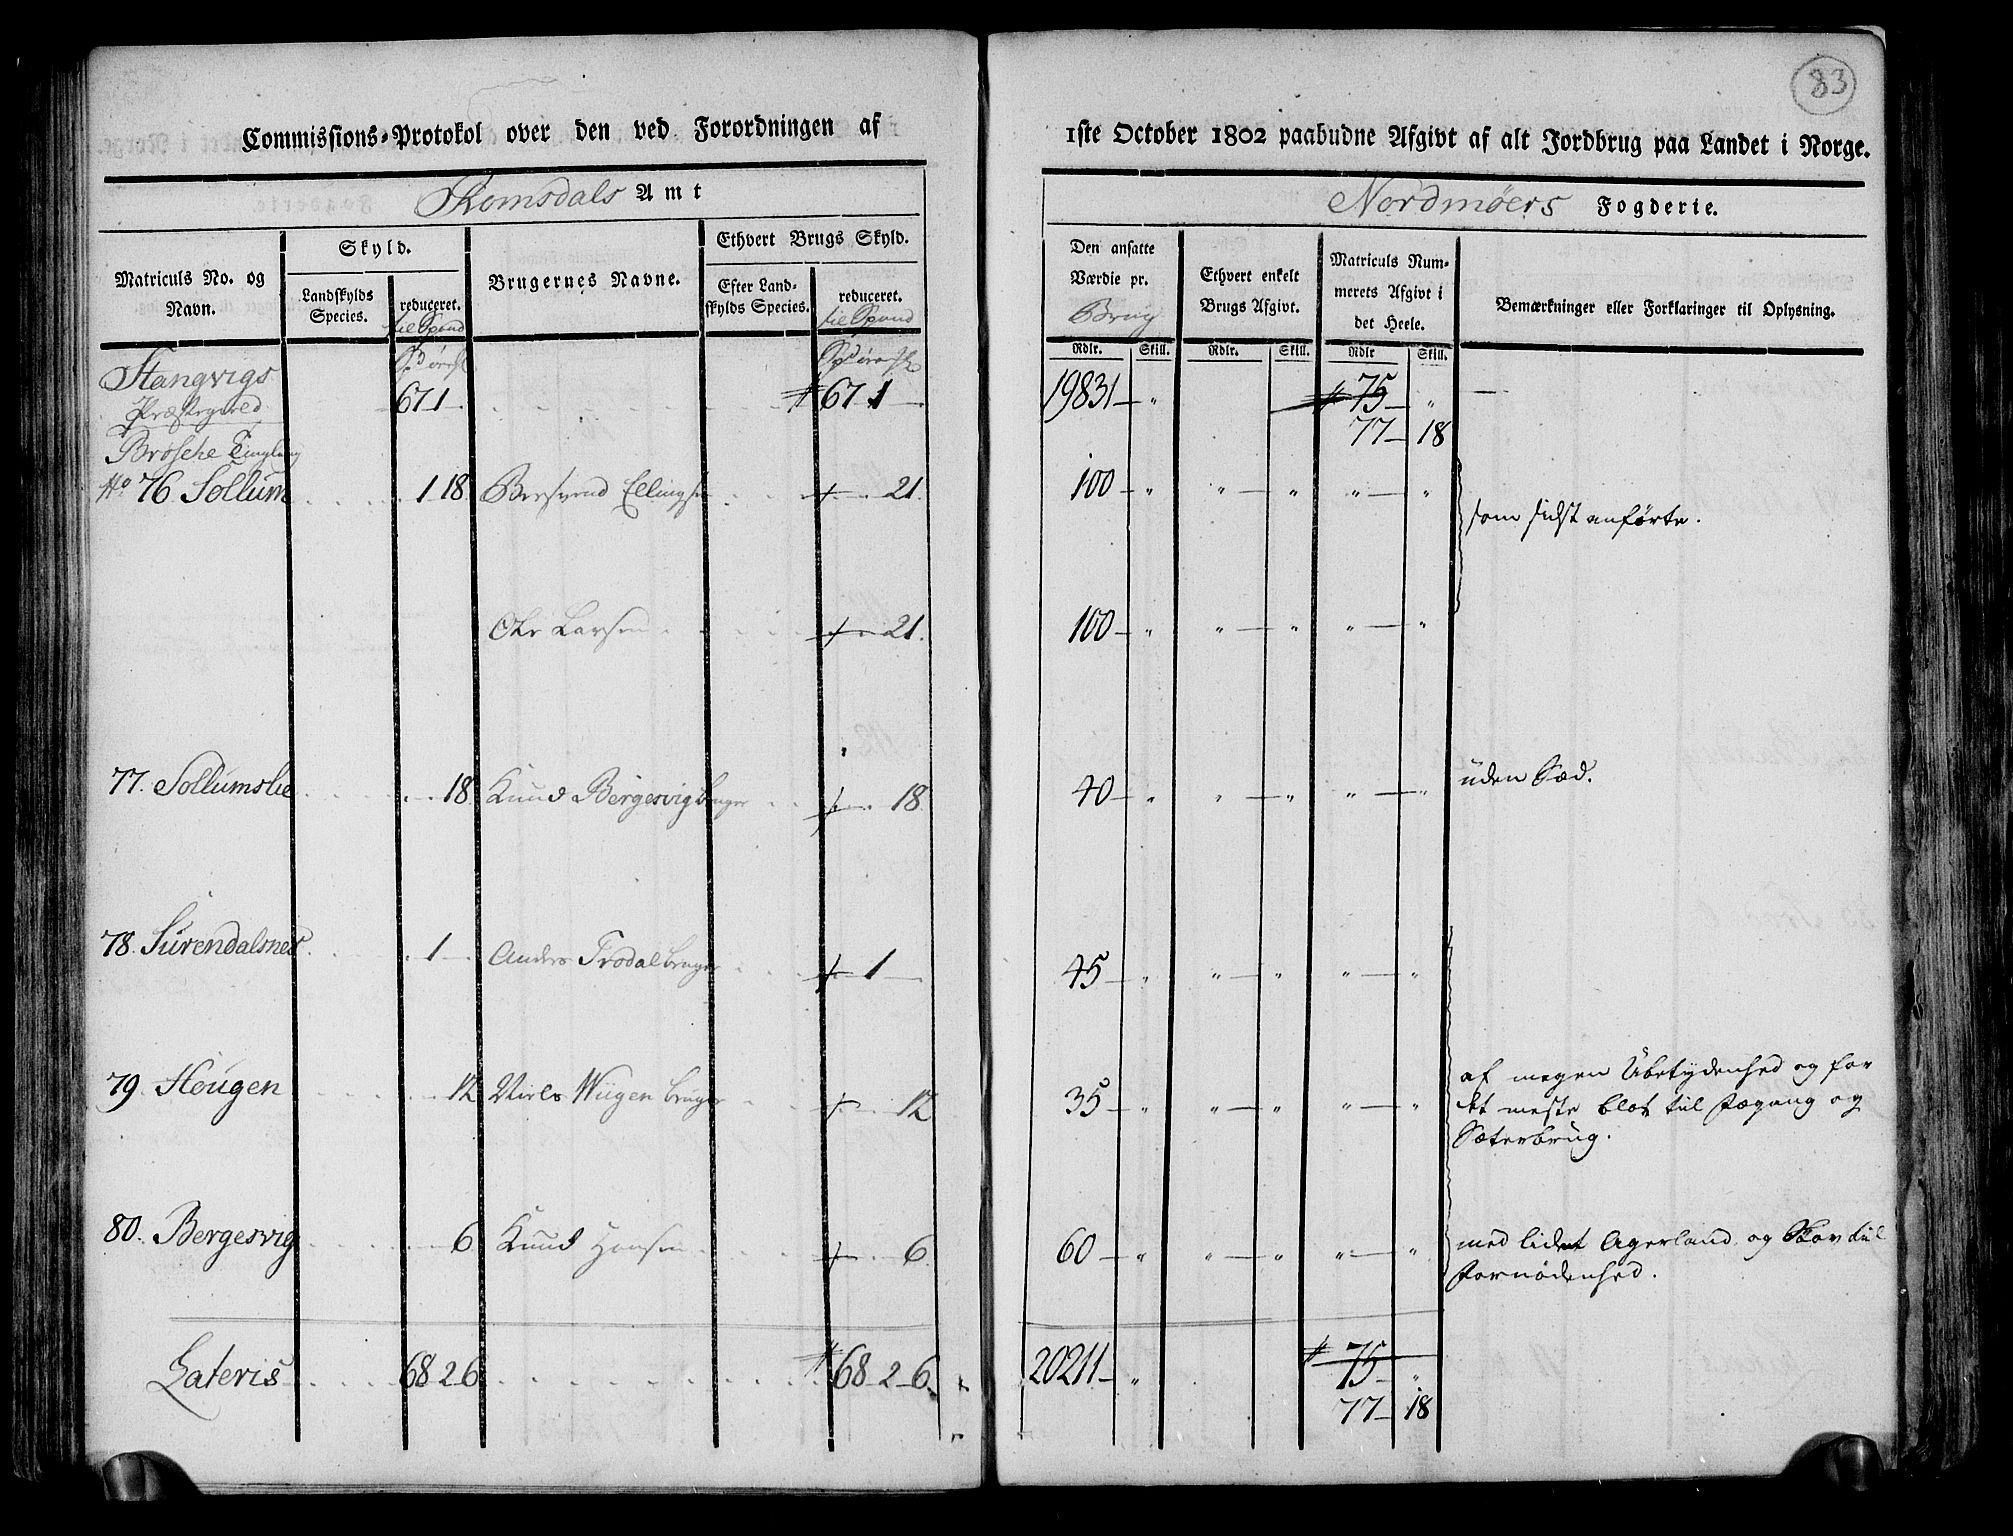 83
Commissions-Protokol over den ved Forordningen af
1ste October 1802 paabudne Afgivt af alt Jordbrug paa Landet i Norge.
Romsdals Amt
Nordmøers Fogderie.
Matriculs No. og Navn.
Skyld.
Landskylds Species.
reduceret. til Spund
Brugernes Navne.
Ethvert Brugs Skyld.
Efter Landskylds Species.
reduceret. til Spund
Den ansatte Værdie pr. Brug
Ethvert enkelt Brugs Afgivt.
Matriculs Nummerets Afgivt i det Heele.
Bemærkninger eller Forklaringer til Oplysning.
Rdlr. Skill. Rdlr. Skill. Rdlr Skill.
Stangvigs
Præstegield 67 1 — 67 1 — 19831 — " 75 — " —
77 — 18
Brøske Tinglaug
No 76. Sollum 1 18 Bersvend Ellingsen 21. 100 — " " — " " — " som sidst anførte.
Ole Larsen 21. 100 — " " — " " — "
77. Sollumslie 18 Knud Bergesvig bruger 18 40 — " " — " " — " uden Sæd.
78. Surendalsnes 1 — Anders Trodal bruger 1 — 45 — " " — " " — "
79. Hougen 12 Niels Wiigen bruger 12 35 — " " — " " — " af megen Ubetydenhed og for
det meste blot til Fægang og
Sæterbrug.
80. Bergesvig 6 Knud Hansen 6 60 — " " — " " — " med lidet Agerland og Skov til
Fornødenhed.
Lateris 68 2 6 68 2 6. 20211 — " 75 — "
77 — 18